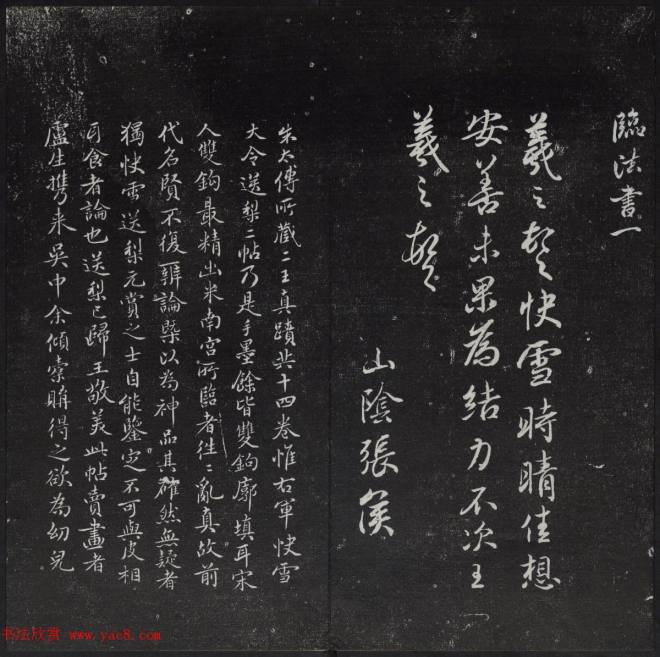 臨法書一
羲之頓首快雪時晴佳想
安善未果為結力不次王
羲之頓首
山陰張侯
朱太傅所藏二王真蹟共十四卷惟右軍快雪
大令送梨二帖乃是手墨餘皆雙鉤廓填耳宋
人雙鉤最精出米南宮所臨者往〻亂真故前
代名賢不復辨論槩以為神品其確然無疑者
獨快雪送梨元賞之士自能鑒定不可與皮相
耳食者論也送梨已歸王敬美此帖賣畫者
盧生攜來吳中余傾橐購得之欲為幼兒
书法欣赏 www.yac8.com